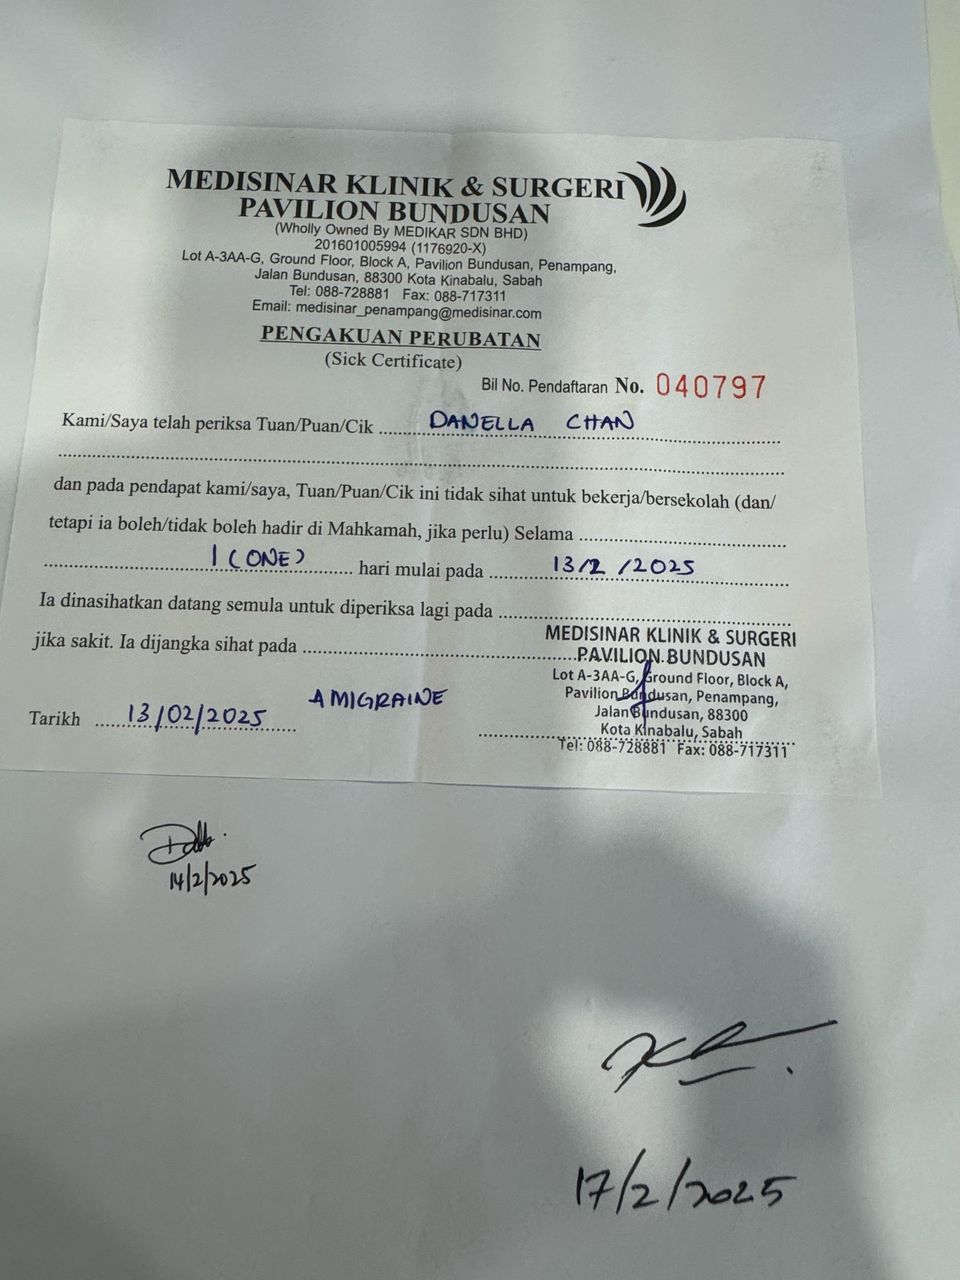 MEDISINAR KLINIK & SURGERI
PAVILION BUNDUSAN
(Wholly Owned By MEDIKAR SDN BHD)
201601005994 (1176920-X)
Lot A-3AA-G, Ground Floor, Block A, Pavilion Bundusan, Penampang,
Jalan Bundusan, 88300 Kota Kinabalu, Sabah
Tel: 088-728881 Fax: 088-717311
Email: medisinar_penampang@medisinar.com
PENGAKUAN PERUBATAN
(Sick Certificate)
Bil No. Pendaftaran No. 040797
Kami/Saya telah periksa Tuan/Puan/Cik DANELLA CHAN
dan pada pendapat kami/saya, Tuan/Puan/Cik ini tidak sihat untuk bekerja/bersekolah (dan/
tetapi ia boleh/tidak boleh hadir di Mahkamah, jika perlu) Selama
1 (ONE) hari mulai pada 13/2/2025
Ia dinasihatkan datang semula untuk diperiksa lagi pada
jika sakit. Ia dijangka sihat pada
MEDISINAR KLINIK & SURGERI
PAVILION BUNDUSAN
Lot A-3AA-G, Ground Floor, Block A,
Pavilion Bundusan, Penampang,
Jalan Bundusan, 88300
Kota Kinabalu, Sabah
Tel: 088-728881 Fax: 088-717311
Tarikh 13/02/2025 MIGRAINE
14/2/2025
17/2/2025